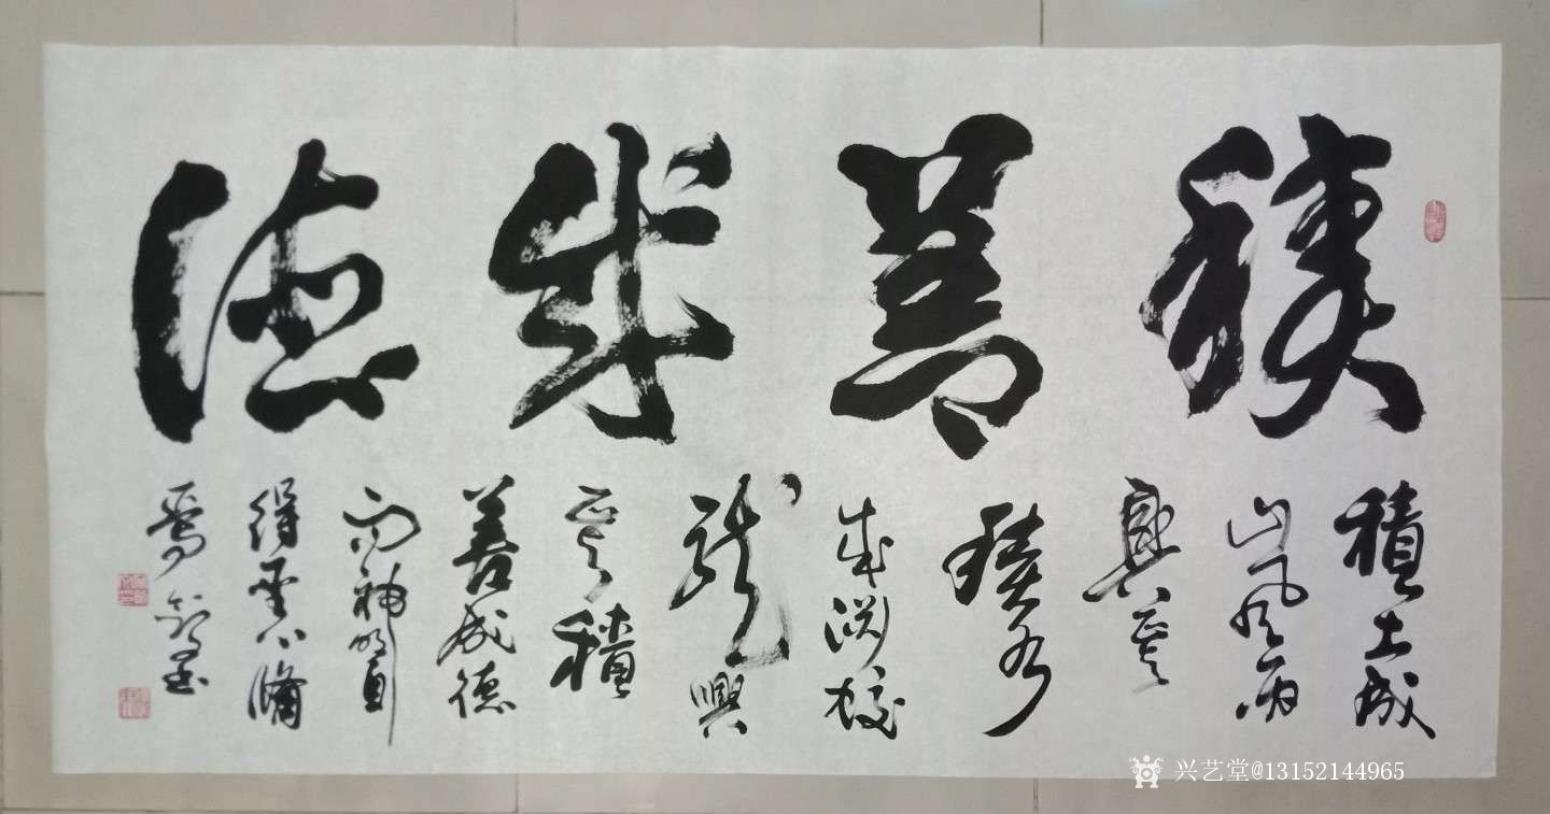 積善成德
積土成
山風雨
興焉
積水
成淵蛟
龍
興
焉積
善成德
而神明自
得聖心備
焉
兴艺堂@13152144965